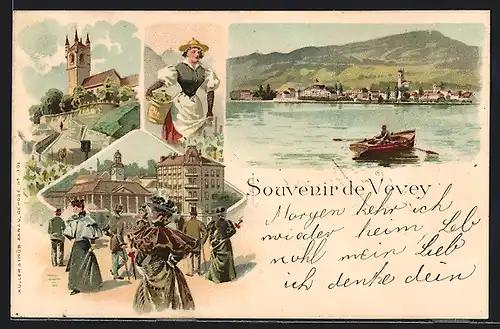 Souvenir de Vevey
Morgen kehr ich
wieder heim, Leb
wohl mein Lieb
ich denke dein
MÜLLER & TRÜB AARAU, DEPOSE, Nº 101